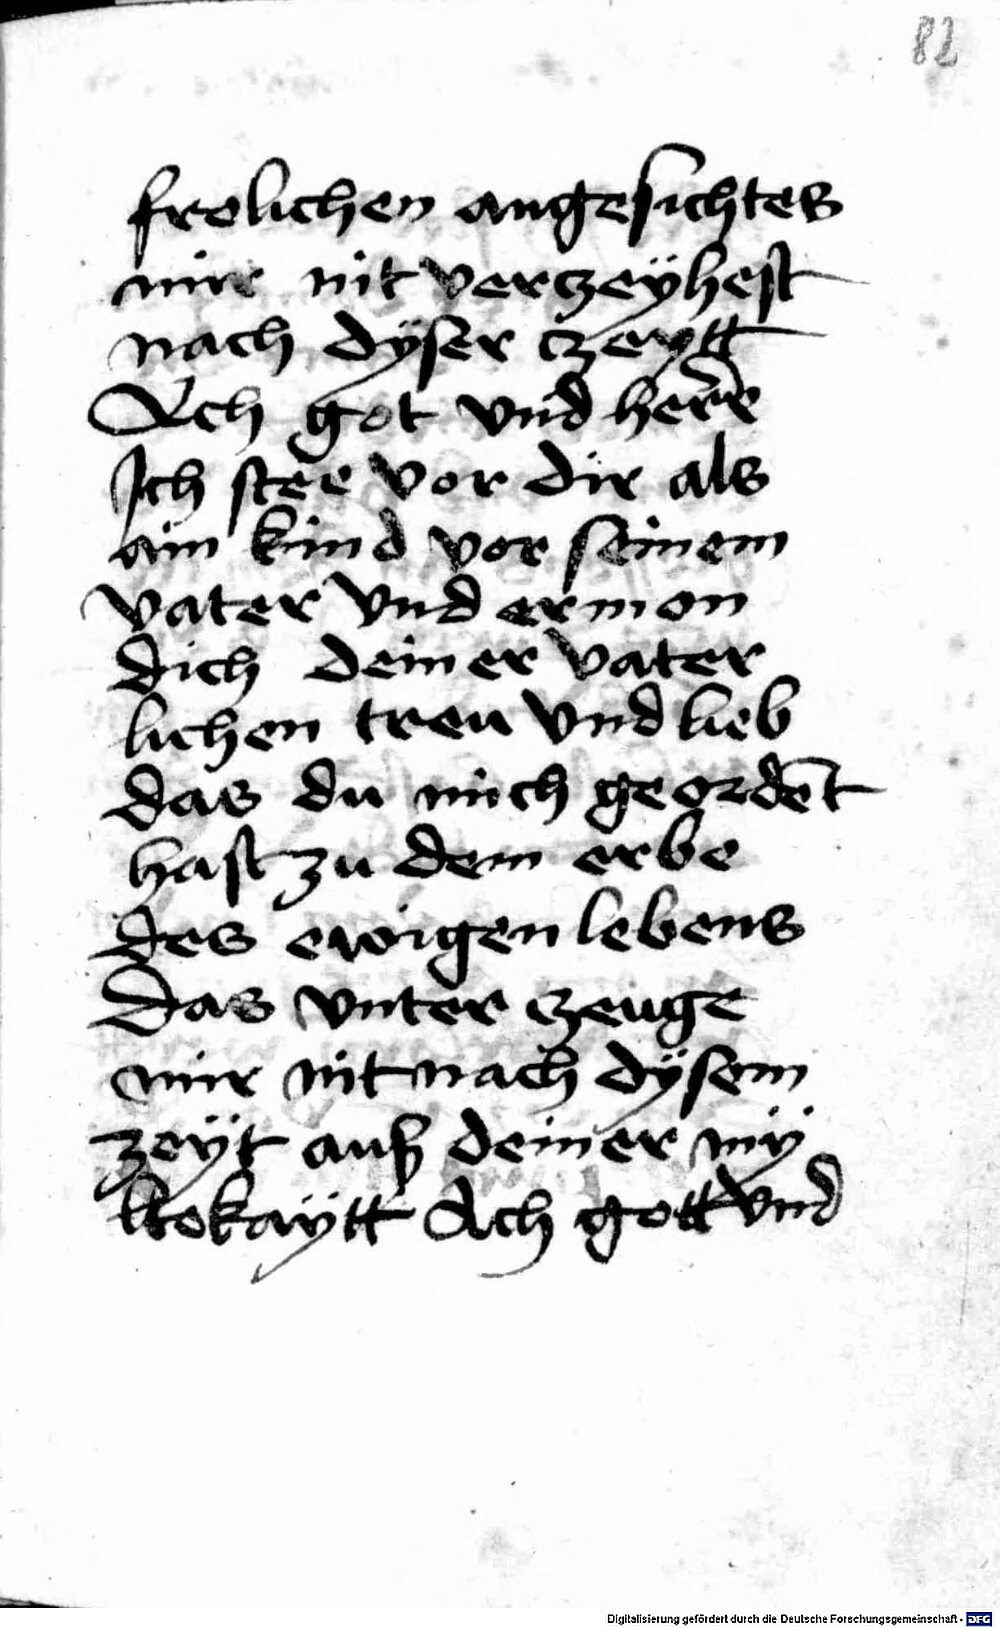 82
frolichen angesichtes
mir nit verczeÿhest
nach dÿser czeytt
Ach got vnd herre
Ich stee vor dir als
ain kind vor seinem
vater vnd ermon
dich deiner vater
lichen treu vnd lieb
das du mich geordēt
hast zu dem erbe
des ewigen lebens
Das vnter czeuge
mir nit nach dÿsem
zeÿt auß deiner mÿ
ltekaÿtt Ach gott vnd
Digitalisierung gefördert durch die Deutsche Forschungsgemeinschaft - DFG